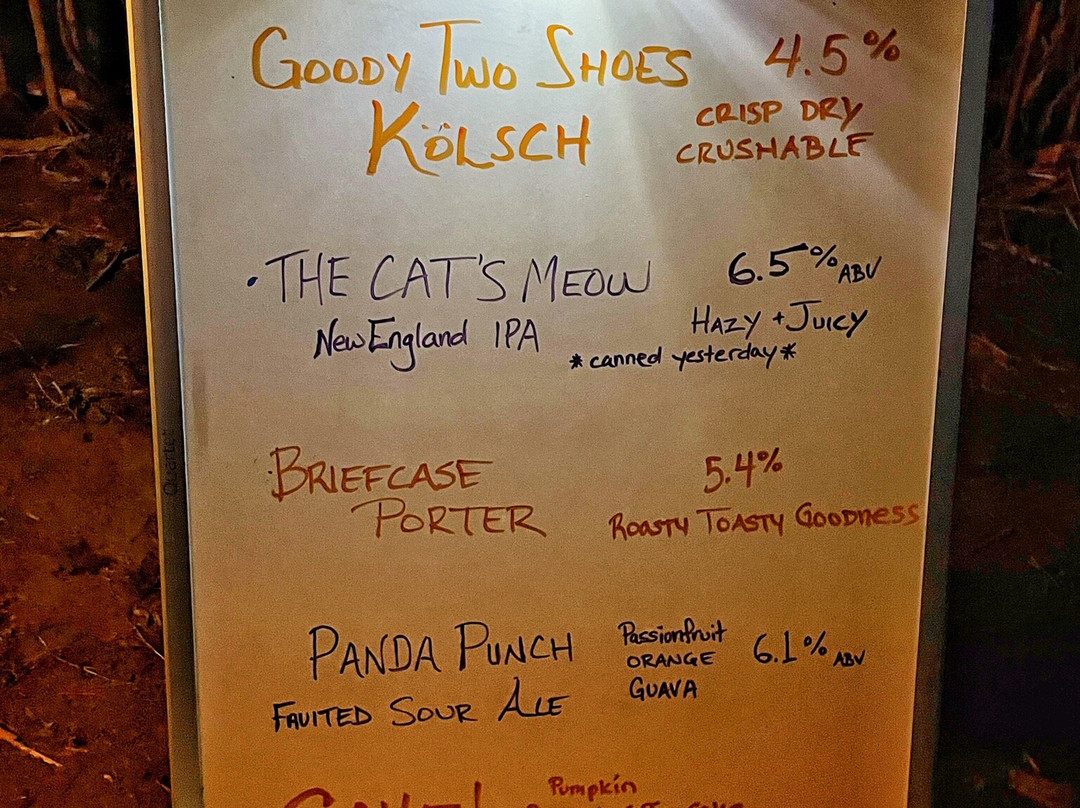 GOODY TWO SHOES 4.5%
KÖLSCH CRISP DRY
CRUSHABLE
• THE CAT'S MEOW 6.5% ABV
New England IPA HAZY + JUICY
*canned yesterday*
BRIEFCASE 5.4%
PORTER ROASTY TOASTY GOODNESS
PANDA PUNCH Passionfruit
ORANGE 6.1% ABV
GUAVA
FRUITED SOUR ALE
Pumpkin
Quartet